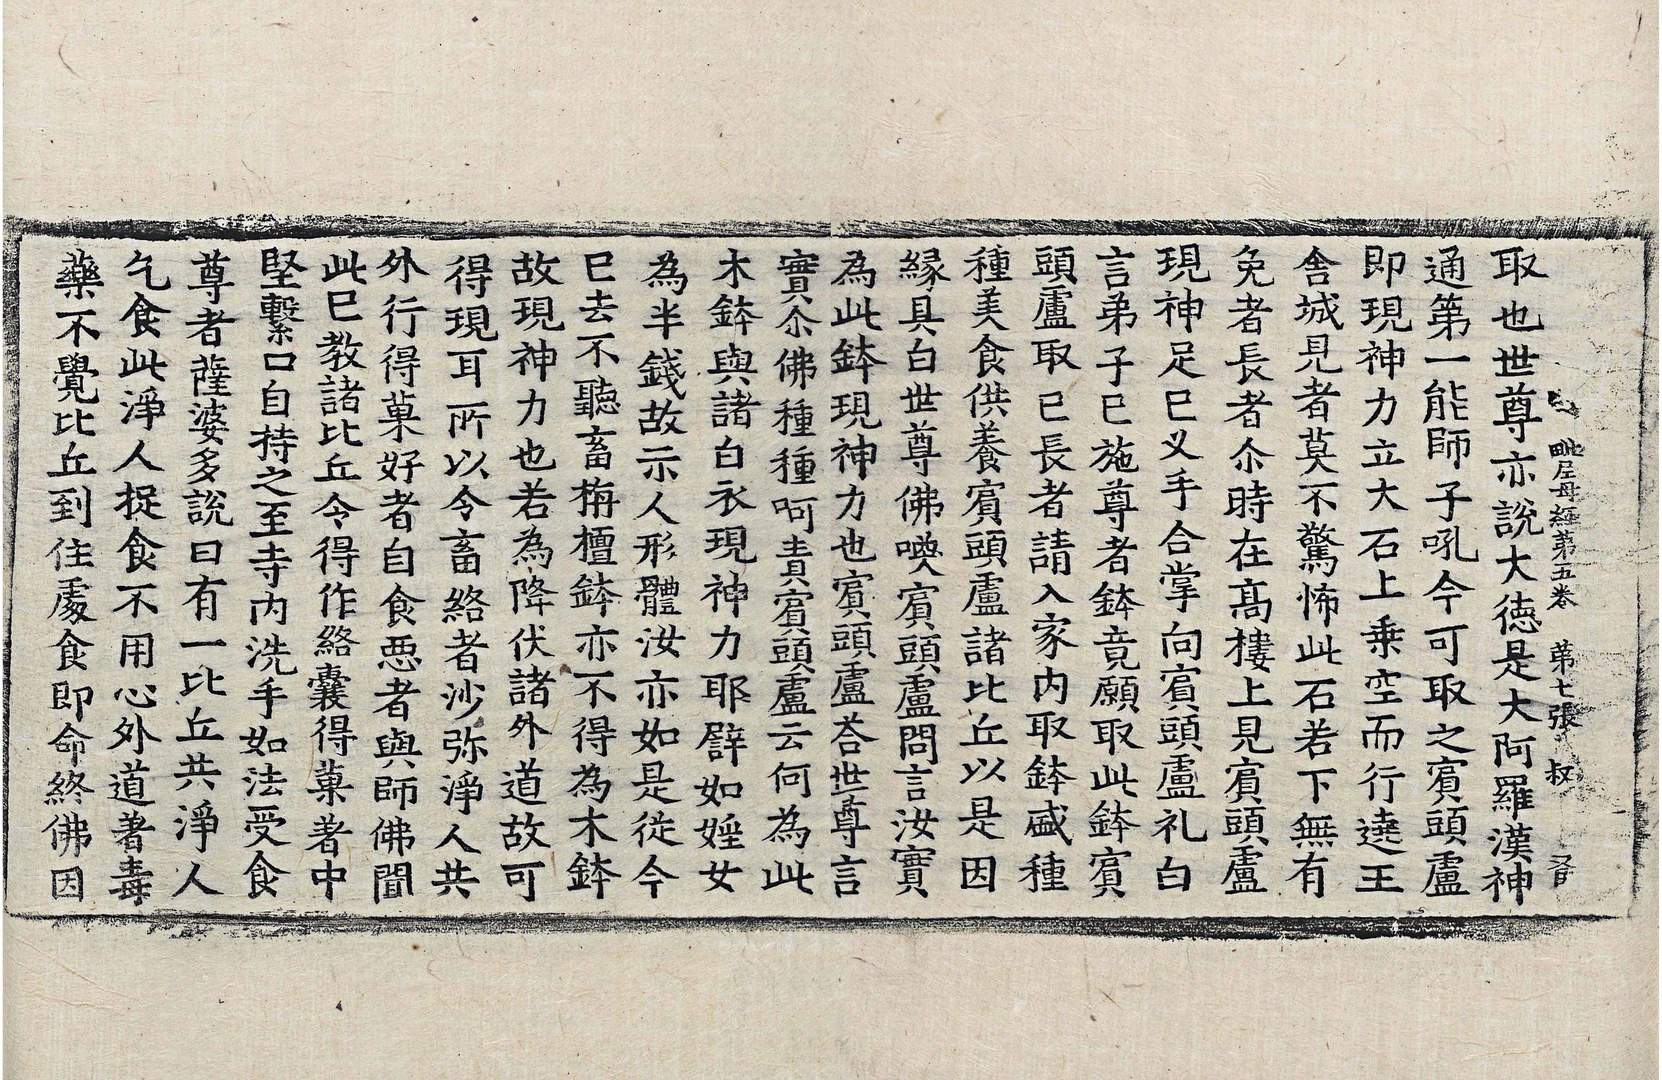 毗尼母經第五卷　第七張　叔
取也世尊亦說大德是大阿羅漢神
通第一能師子吼今可取之賔頭盧
即現神力立大石上乗空而行遶王
舍城見者莫不驚怖此石若下無有
免者長者尒時在髙樓上見賔頭盧
現神足已叉手合掌向賔頭盧礼白
言弟子已施尊者鉢竟願取此鉢賔
頭盧取已長者請入家内取鉢盛種
種美食供養賔頭盧諸比丘以是因
縁具白世尊佛喚賔頭盧問言汝實
為此鉢現神力也賔頭盧荅世尊言
實尒佛種種呵責賔頭盧云何為此
木鉢與諸白衣現神力耶譬如婬女
為半錢故示人形體汝亦如是従今
已去不聽畜栴檀鉢亦不得為木鉢
故現神力也若為降伏諸外道故可
得現耳所以令畜絡者沙弥淨人共
外行得菓好者自食惡者與師佛聞
此已教諸比丘令得作絡囊得菓著中
堅繫口自持之至寺内洗手如法受食
尊者薩婆多說曰有一比丘共淨人
乞食此淨人捉食不用心外道著毒
藥不覺比丘到住處食即命終佛因